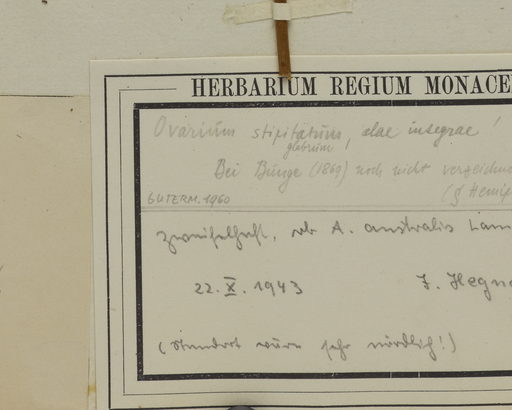 HERBARIUM REGIUM MONACE
Ovarium stipitatum, alae integrae!
glabrum,
Bei Bunge (1869) noch nicht verzeichn
GUTERM. 1960 (§ Hemip
Zweifelhaft, ob A. australis Lam
22.X.1943 J. Hegn
(Standort wäre sehr nördlich!)